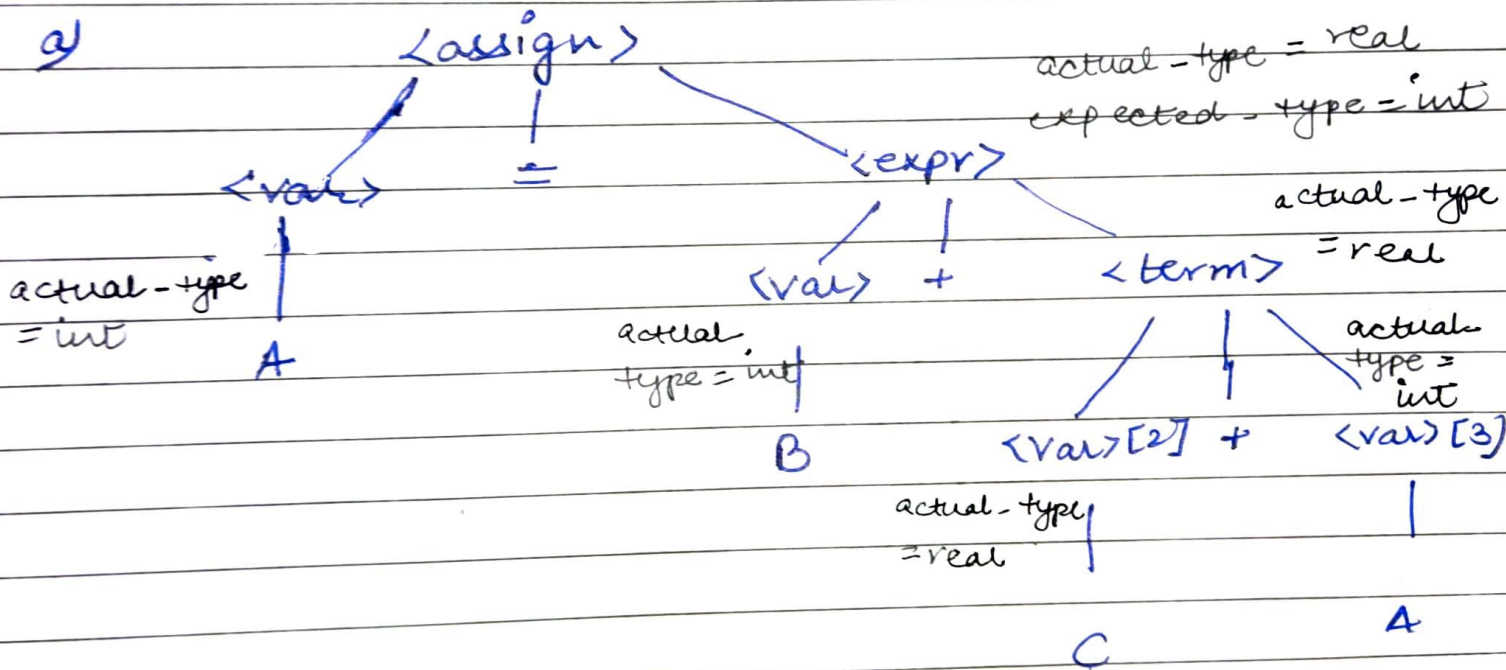 a)
<assign>
actual-type = real
expected-type = int
<var> = <expr>
actual-type
= real
<var> + <term>
actual-type
= int
A
actual
type = int
actual
type =
int
B
<var>[2] + <var>[3]
actual-type
= real
A
C